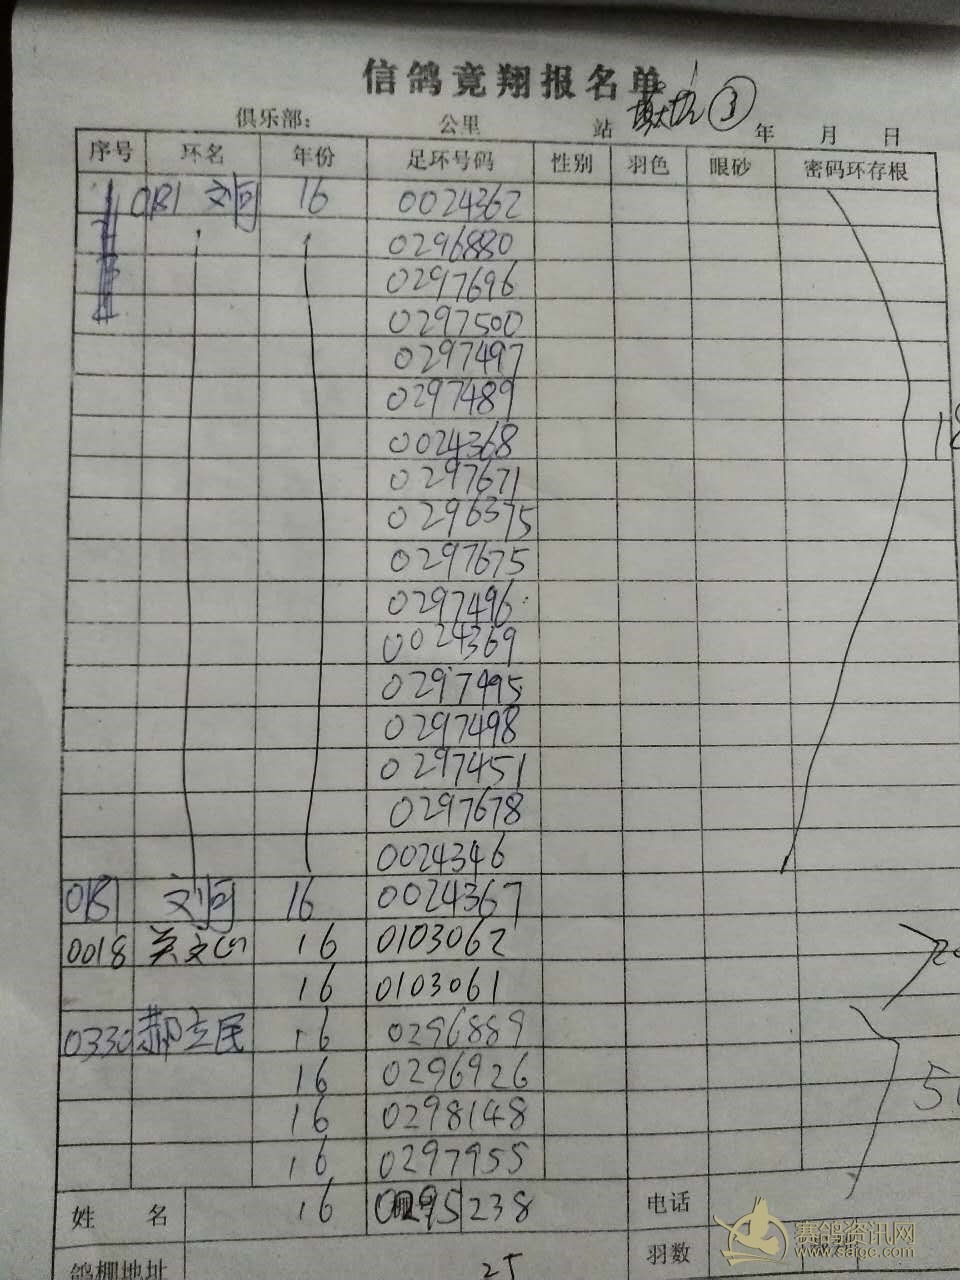 信鸽竞翔报名单
俱乐部： 公里 站 ③ 年 月 日
序号 环名 年份 足环号码 性别 羽色 眼砂 密码环存根
0181 刘河 16 0024362
0296880
0297696
0297500
0297497
0297489
0024368
0297671
0296375
0297675
0297496
0024369
0297495
0297498
0297451
0297678
0024346
0181 刘河 16 0024367
0018 16 0103062
16 0103061
0330 郝立民 16 0296889
16 0296926
16 0298148
16 0297955
姓 名 16 0295238 电话
鸽棚地址 25 羽数
赛鸽资讯网
www.saigc.com